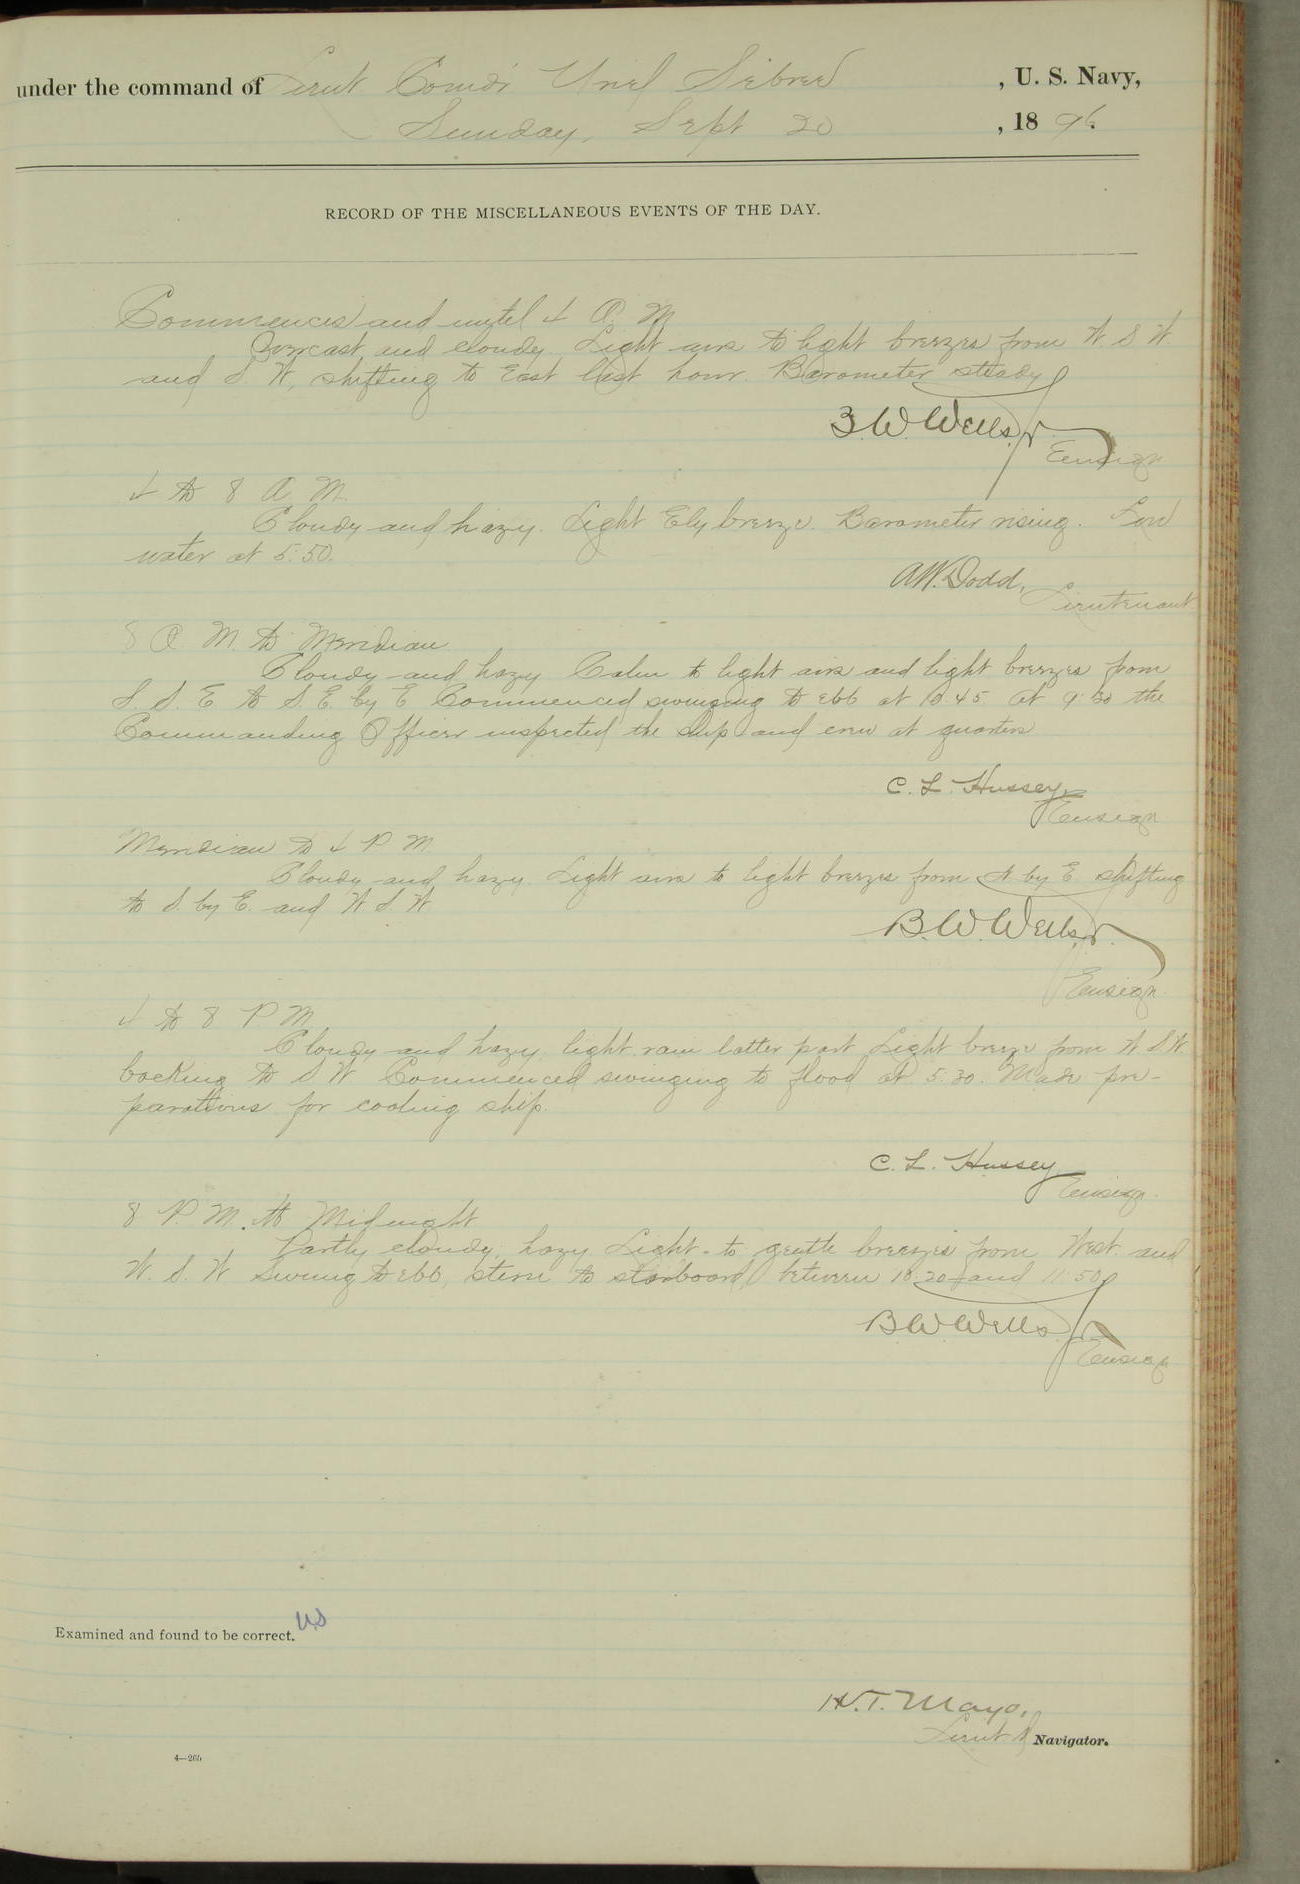 under the command of Lieut Comdr Uriel Sebree , U. S. Navy,
Sunday, Sept 20 , 18 96.
RECORD OF THE MISCELLANEOUS EVENTS OF THE DAY.
Commences and until 4 A. M.
Overcast and cloudy. Light airs to light breezes from W. S W.
and S. W, shifting to East last hour. Barometer steady
B. W. Wells Jr.
Ensign
4 to 8 A. M.
Cloudy and hazy. Light Ely breeze. Barometer rising. Low
water at 5.50.
A.W. Dodd,
Lieutenant
8 A M. to Meridian
Cloudy and hazy Calm to light airs and light breezes from
S. S. E to S. E. by E Commenced swinging to ebb at 10.45 At 9:30 the
Commanding Officer inspected the ship and crew at quarters
C. L. Hussey,
Ensign
Meridian to 4 P M
Cloudy and hazy Light airs to light breezes from by E. shifting
to S. by E. and W S. W.
B. W. Wells Jr.
Ensign.
4 to 8 P M
Cloudy and hazy, light rain latter part Light breeze from W S W
backing to S W Commenced swinging to flood at 5.30. Made pre-
parations for coaling ship.
C. L. Hussey
Ensign.
8 P. M. to Midnight
Partly cloudy, hazy Light to gentle breezes from West and
W. S. W Swung to ebb, stern to starboard between 10.20 and 11.50
B W Wells Jr
Ensign
Examined and found to be correct. US
H. T. Mayo,
Lieut & Navigator.
4—265